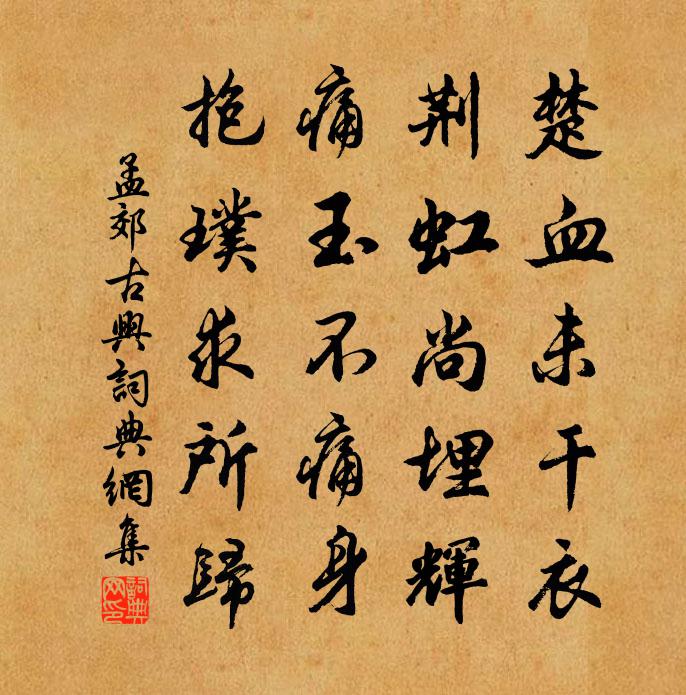 楚血未干衣
荆虹尚埋輝
痛玉不痛身
抱璞求所歸
孟郊古興詞典網集
詞典
网印